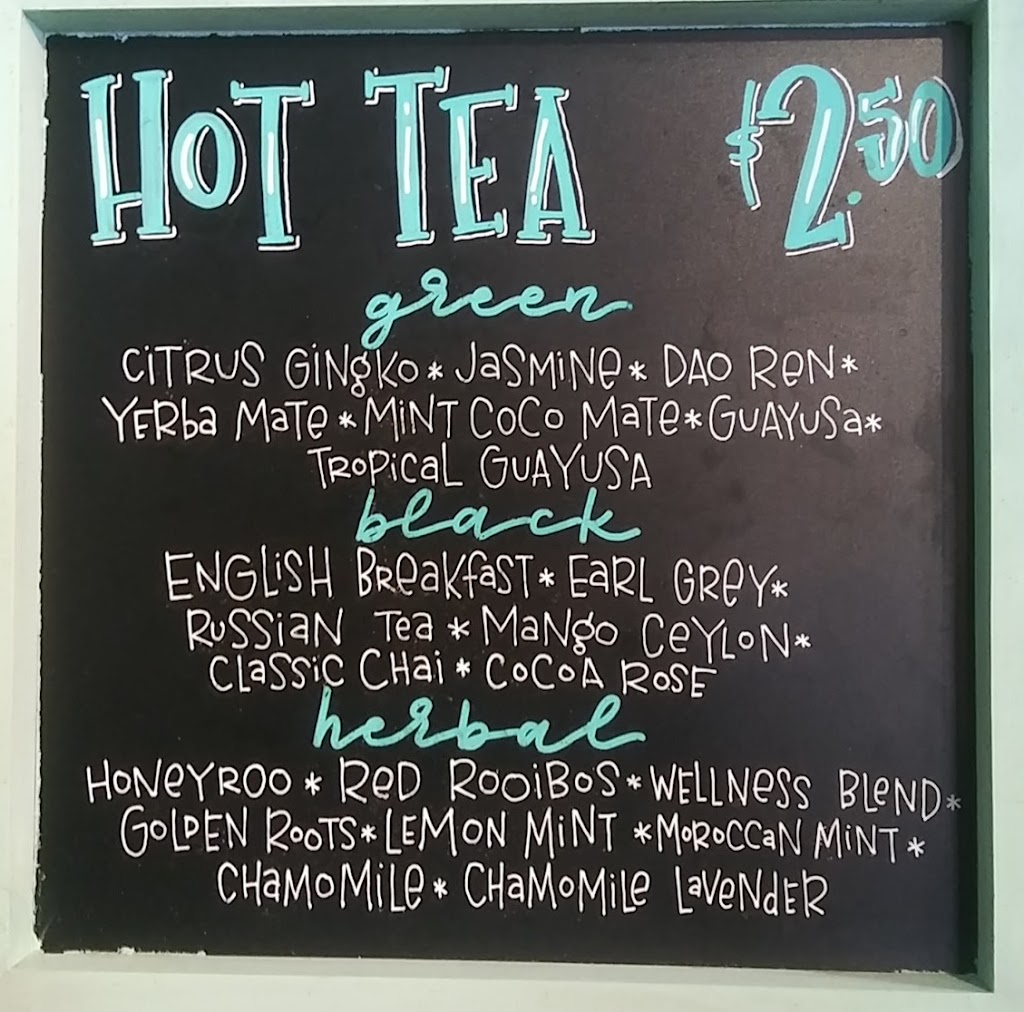 HOT TEA $2.50
green
CITRUS GINGKO * JASMINE * DAO REN *
YERBA MATE * MINT COCO MATE * GUAYUSA *
TROPICAL GUAYUSA
black
ENGLISH BREAKFAST * EARL GREY *
RUSSIAN TEA * MANGO CEYLON *
CLASSIC CHAI * COCOA ROSE
herbal
HONEYROO * RED ROOIBOS * WELLNESS BLEND *
GOLDEN ROOTS * LEMON MINT * MOROCCAN MINT *
CHAMOMILE * CHAMOMILE LAVENDER